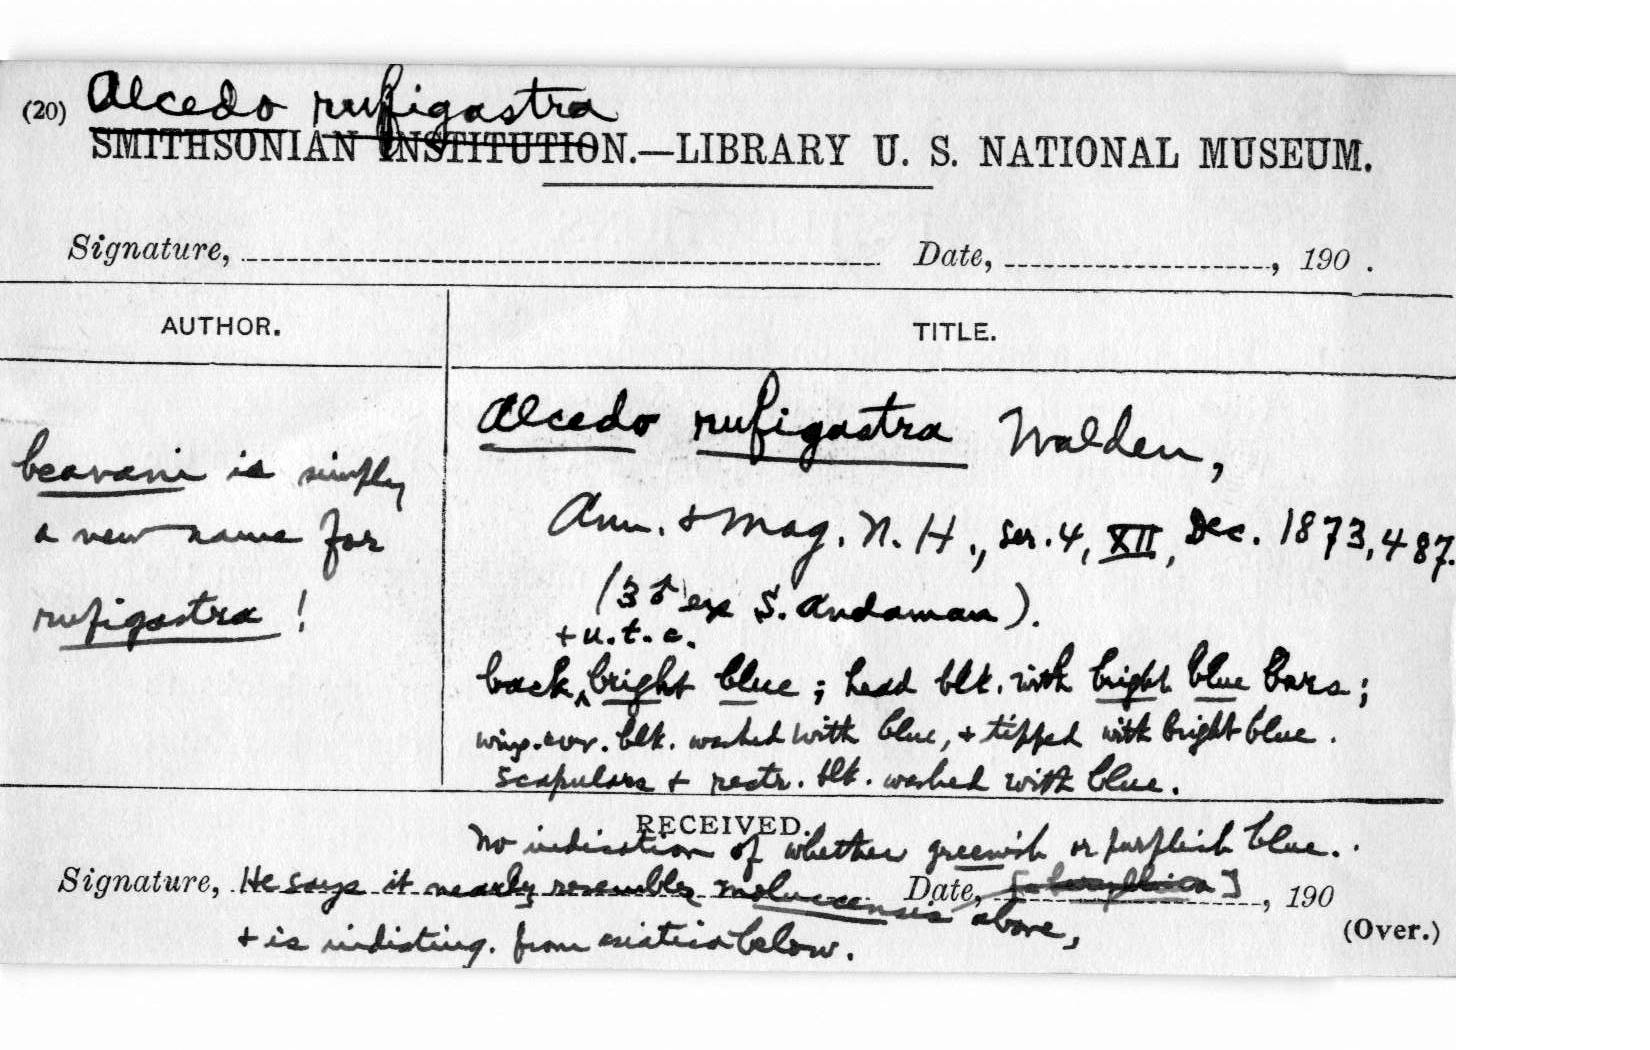 (20) Alcedo rufigastra
SMITHSONIAN INSTITUTION.—LIBRARY U. S. NATIONAL MUSEUM.
Signature, Date, , 190 .
AUTHOR. TITLE.
beavani is simply
a new name for
rufigastra !
Alcedo rufigastra Walden,
Ann. + Mag. N. H., ser. 4, XII, Dec. 1873, 487.
(3 ♂ ex S. Andaman).
+ u. t. c.
back ‸ bright blue ; head blk. with bright blue bars ;
wing-cov. blk. washed with blue, + tipped with bright blue.
Scapulars + rectr. blk. washed with blue.
RECEIVED.
No indication of whether greenish or purplish blue.
Signature, He says it nearly resembles moluccensis Date, , 190
above,
+ is indisting. from asiatica below.
(Over.)